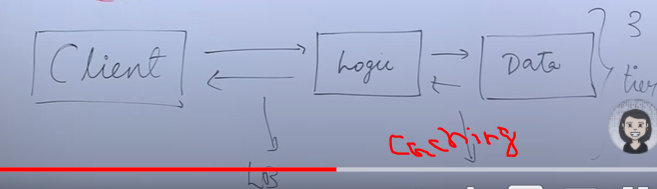 Client
Logic
Data
3
tier
Caching
LB